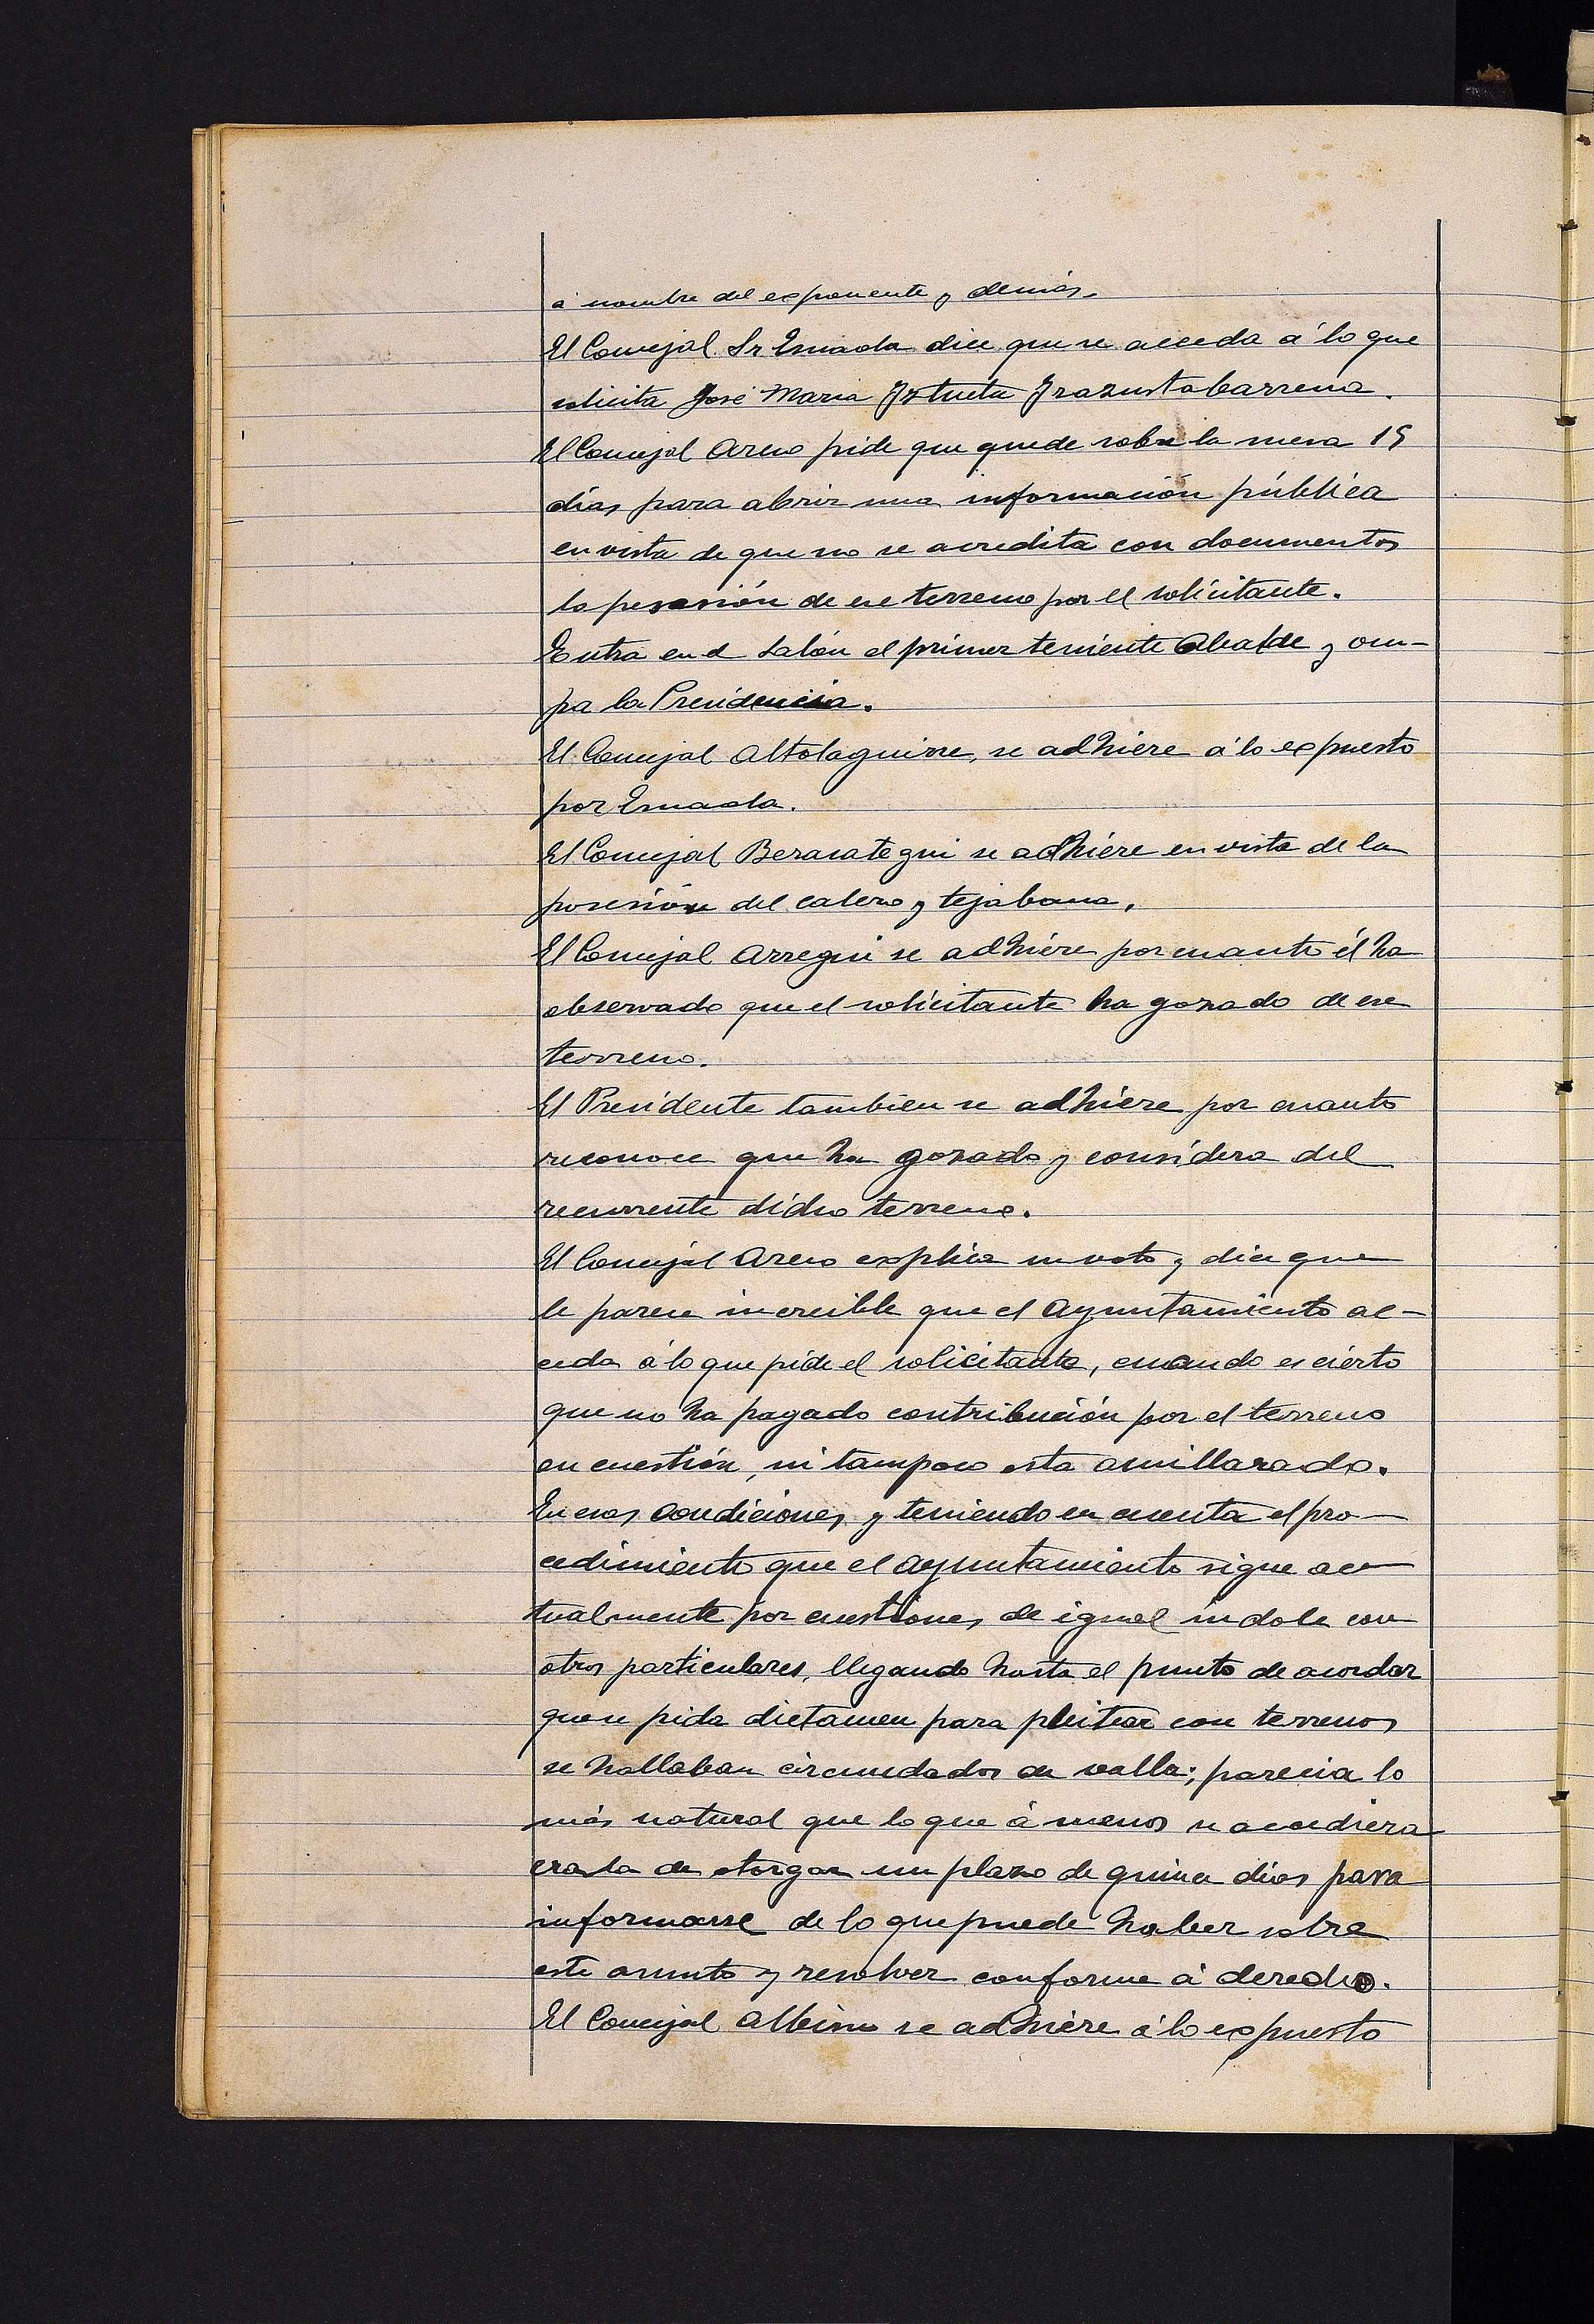 á nombre del exponente y demás.
El Concejal Sr Esnaola dice que se acceda á lo que
solicita José Maria Iztueta Irazustabarrena.
El Concejal Arcno pide que quede sobre la mesa 15
días para abrir una información pública
en vista de que no se acredita con documentos
la posesión de ese terreno por el solicitante.
Entra en el salón el primer teniente Alcalde y ocu-
pa la Presidencia.
El Concejal Altolaguirre, se adhiere á lo expuesto
por Esnaola.
El Concejal Berasategui se adhiere en vista de la
posesión del calero y tejabana.
El Concejal Arregui se adhiere por cuanto él ha
observado que el solicitante ha gozado de ese
terreno.
El Presidente tambien se adhiere por cuanto
reconoce que ha gozado y considera del
recurrente dicho terreno.
El Concejal explica su voto y dice que
le parece increible que el Ayuntamiento ac-
ceda á lo que pide el solicitante, cuando es cierto
que no ha pagado contribución por el terreno
en cuestión, ni tampoco esta amillarado.
En esas condiciones y teniendo en cuenta el pro-
cedimiento que el Ayuntamiento sigue ac-
tualmente por cuestiones de igual indole con
otros particulares, llegando hasta el punto de acordar
que se pida dictamen para pleitear con terrenos
se hallaban circundados de valla; parecia lo
más natural que lo que á menos se accediera
era la de otorgar un plazo de quince dias para
informarse de lo que puede haber sobre
este asunto y resolver conforme á derecho.
El Concejal Albisu se adhiere á lo expuesto